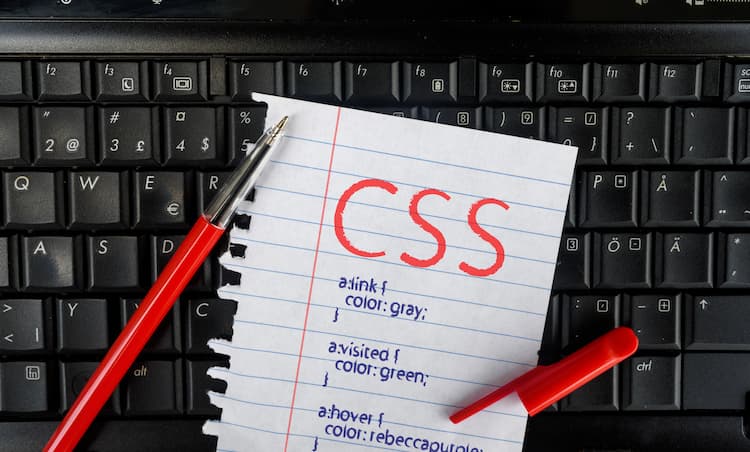 f2 f3 f4 f5 f6 f7 f8 f9 f10 f11 f12
" 2 @ # 3 £ ¤ 4 $ % 5
Q W E € R P Å
A S D Ö Ä
> < | Z X C
fn alt ctrl
CSS
a:link {
color: gray;
}
a:visited {
color: green;
}
a:hover {
color: rebeccapurple;
}